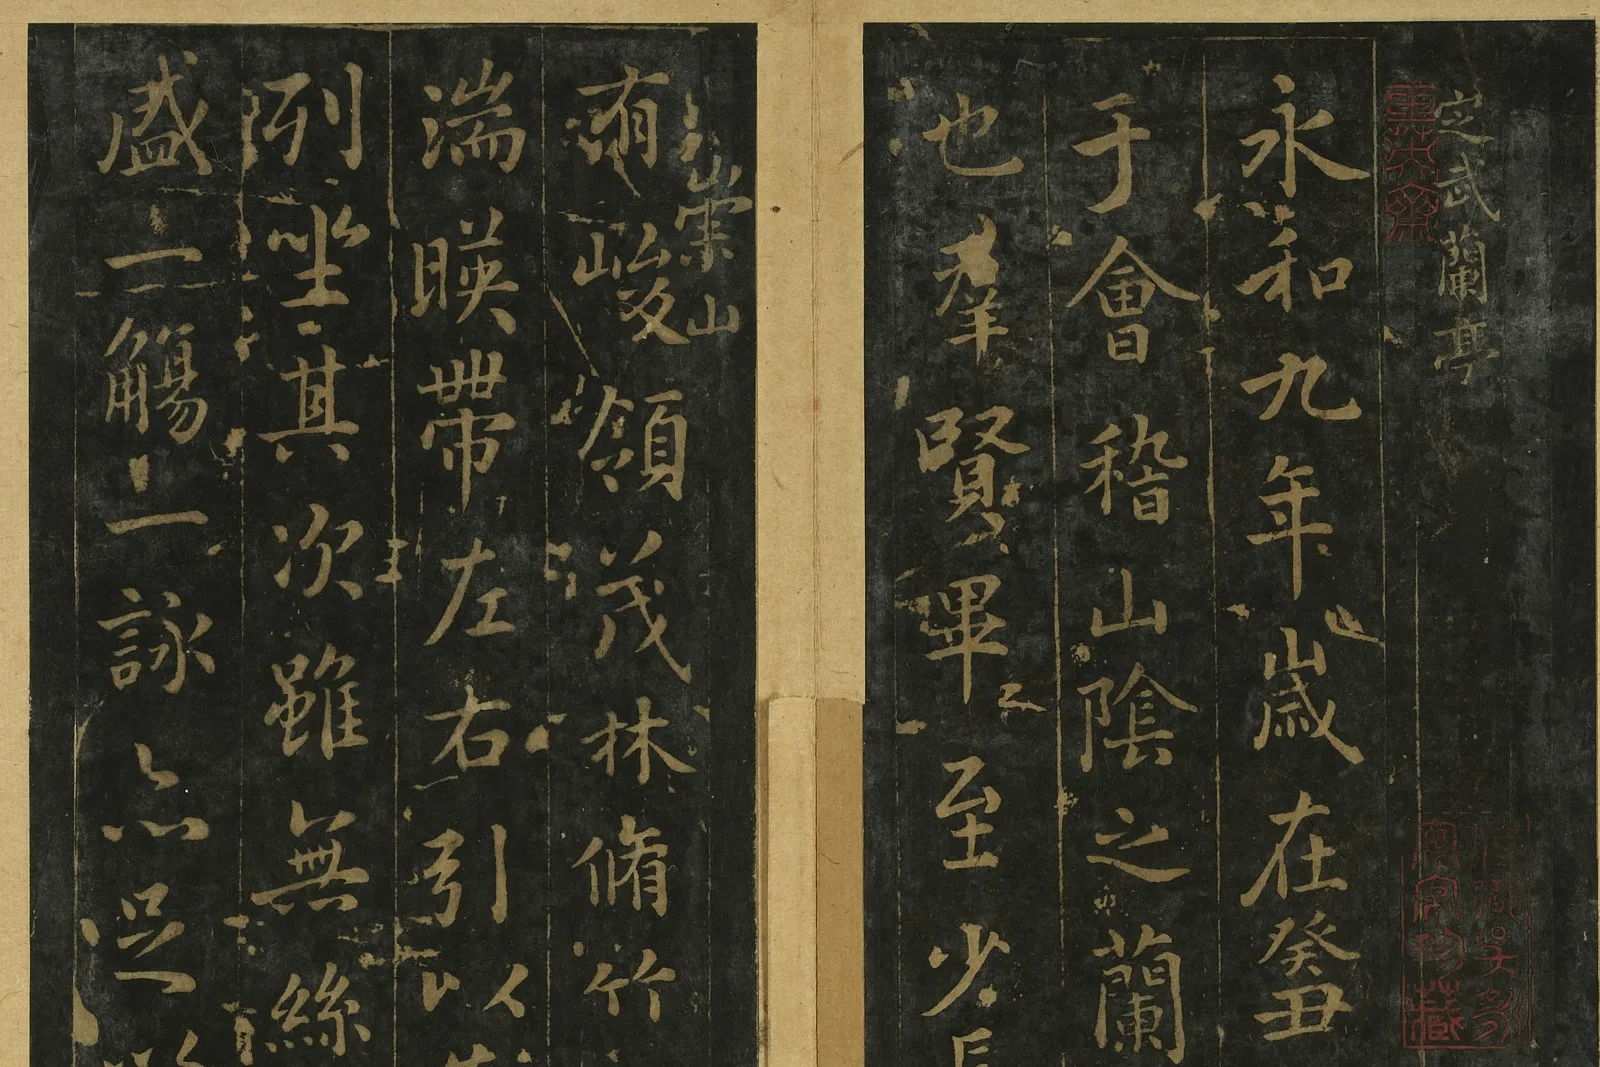 定武蘭亭
永和九年歲在癸丑
于會稽山陰之蘭
也羣賢畢至少長
崇山
有峻領茂林脩竹
湍暎帶左右引以
列坐其次雖無絲
盛一觴一詠亦足